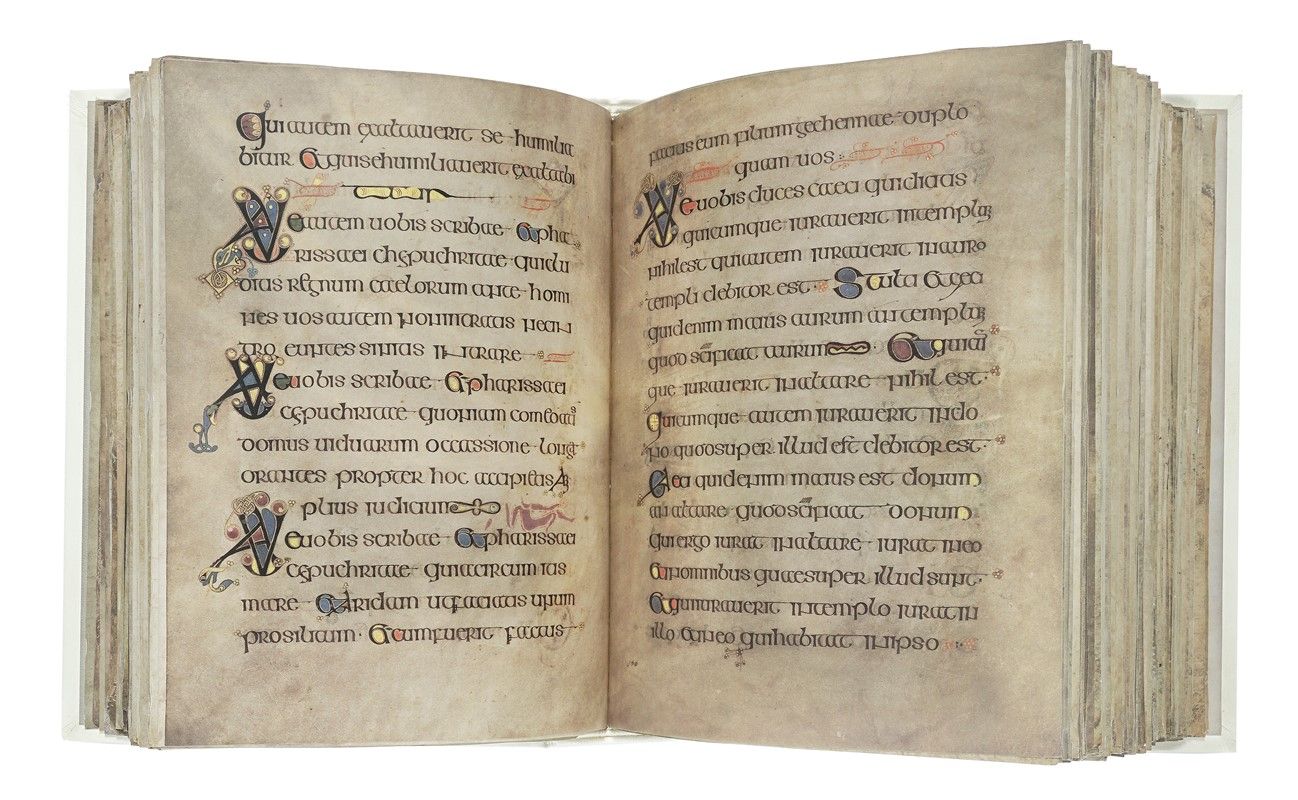 Qui autem exaltauerit se humilia
bitur Et qui se humiliauerit exaltabi
Vae autem uobis scribae et pha
rissaei chypuchritae qui clu
ditis regnum caelorum ante homi
nes uos autem non intratis nec in
tro euntes sinitis intrare
Vae uobis scribae et pharissaei
chypuchritae quoniam comedati
domus uiduarum occassione longa
orantes propter hoc accipietis am
plius iudicium
Vae uobis scribae et pharissaei
chypuchritae quia circum itis
mare et aridam ut faciatis unum
prosilitum Et cum fuerit factus
facitis eum filium gechennae duplo
quam uos
Vae uobis duces caeci qui dicitis
quicumque iurauerit in templum
nihil est qui autem iurauerit in auro
templi debitor est Stulti et caeci
quid enim maius aurum an templum
quod scificat aurum Et quicum
que iurauerit in altare nihil est
quicumque autem iurauerit in do
no quod super illud est debitor est
Caeci quid enim maius est donum
an altare quod scificat donum
qui ergo iurat in altare iurat in eo
et in omnibus quae super illud sunt
Et qui iurauerit in templo iurat in
illo et in eo qui habitat in ipso